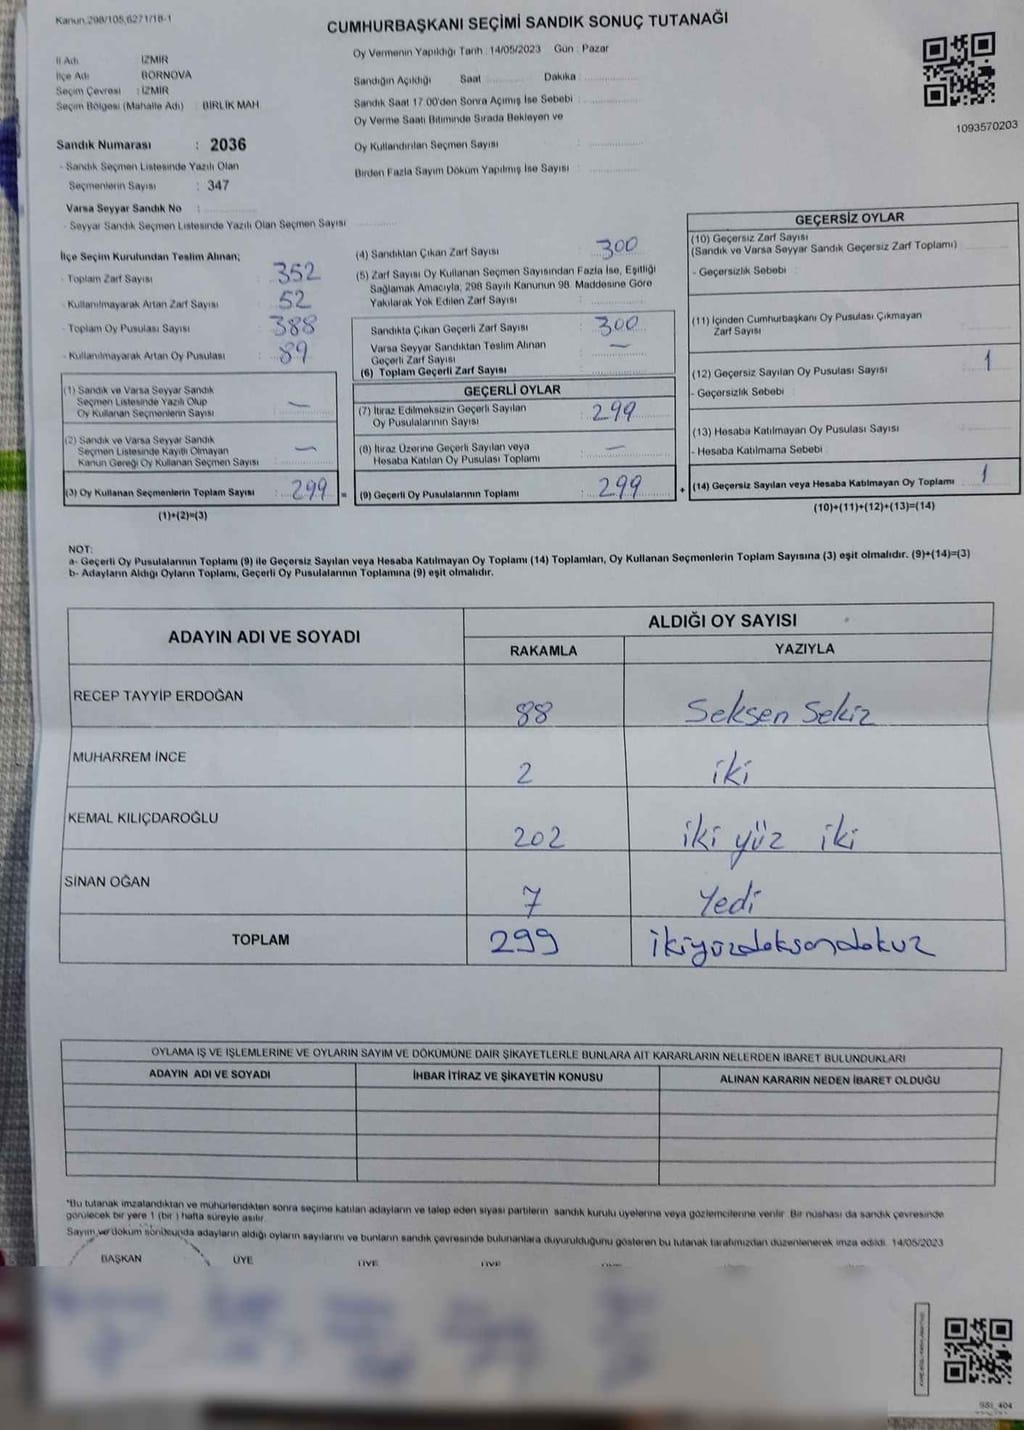 Kanun,298/105,6271/18-1
CUMHURBAŞKANI SEÇİMİ SANDIK SONUÇ TUTANAĞI
Oy Vermenin Yapıldığı Tarih : 14/05/2023 Gün : Pazar
İl Adı İZMİR
İlçe Adı BORNOVA
Seçim Çevresi : İZMİR
Seçim Bölgesi (Mahalle Adı) : BİRLİK MAH
Sandığın Açıldığı Saat Dakika :
Sandık Saat 17.00'den Sonra Açımış İse Sebebi :
Oy Verme Saati Bitiminde Sırada Bekleyen ve
Oy Kullandırılan Seçmen Sayısı :
Birden Fazla Sayım Döküm Yapılmış İse Sayısı :
1093570203
Sandık Numarası : 2036
- Sandık Seçmen Listesinde Yazılı Olan
Seçmenlerin Sayısı : 347
Varsa Seyyar Sandık No :
- Seyyar Sandık Seçmen Listesinde Yazılı Olan Seçmen Sayısı
İlçe Seçim Kurulundan Teslim Alınan;
- Toplam Zarf Sayısı : 352
- Kullanılmayarak Artan Zarf Sayısı : 52
- Toplam Oy Pusulası Sayısı : 388
- Kullanılmayarak Artan Oy Pusulası : 89
(1) Sandık ve Varsa Seyyar Sandık
Seçmen Listesinde Yazılı Olup
Oy Kullanan Seçmenlerin Sayısı : —
(2) Sandık ve Varsa Seyyar Sandık
Seçmen Listesinde Kayıtlı Olmayan
Kanun Gereği Oy Kullanan Seçmen Sayısı : —
(3) Oy Kullanan Seçmenlerin Toplam Sayısı : 299 =
(1)+(2)=(3)
(4) Sandıktan Çıkan Zarf Sayısı : 300
(5) Zarf Sayısı Oy Kullanan Seçmen Sayısından Fazla İse, Eşitliği
Sağlamak Amacıyla, 298 Sayılı Kanunun 98. Maddesine Göre
Yakılarak Yok Edilen Zarf Sayısı :
Sandıkta Çıkan Geçerli Zarf Sayısı : 300
Varsa Seyyar Sandıktan Teslim Alınan
Geçerli Zarf Sayısı : —
(6) Toplam Geçerli Zarf Sayısı :
GEÇERLİ OYLAR
(7) İtiraz Edilmeksizin Geçerli Sayılan
Oy Pusulalarının Sayısı : 299
(8) İtiraz Üzerine Geçerli Sayılan veya
Hesaba Katılan Oy Pusulası Toplamı : —
(9) Geçerli Oy Pusulalarının Toplamı : 299 +
GEÇERSİZ OYLAR
(10) Geçersiz Zarf Sayısı
(Sandık ve Varsa Seyyar Sandık Geçersiz Zarf Toplamı)
- Geçersizlik Sebebi :
(11) İçinden Cumhurbaşkanı Oy Pusulası Çıkmayan
Zarf Sayısı
(12) Geçersiz Sayılan Oy Pusulası Sayısı 1
- Geçersizlik Sebebi :
(13) Hesaba Katılmayan Oy Pusulası Sayısı
- Hesaba Katılmama Sebebi
(14) Geçersiz Sayılan veya Hesaba Katılmayan Oy Toplamı 1
(10)+(11)+(12)+(13)=(14)
NOT:
a- Geçerli Oy Pusulalarının Toplamı (9) ile Geçersiz Sayılan veya Hesaba Katılmayan Oy Toplamı (14) Toplamları, Oy Kullanan Seçmenlerin Toplam Sayısına (3) eşit olmalıdır. (9)+(14)=(3)
b- Adayların Aldığı Oyların Toplamı, Geçerli Oy Pusulalarının Toplamına (9) eşit olmalıdır.
ADAYIN ADI VE SOYADI ALDIĞI OY SAYISI
RAKAMLA YAZIYLA
RECEP TAYYİP ERDOĞAN 88 Seksen Sekiz
MUHARREM İNCE 2 iki
KEMAL KILIÇDAROĞLU 202 iki yüz iki
SİNAN OĞAN 7 Yedi
TOPLAM 299 ikiyüzdoksandokuz
OYLAMA İŞ VE İŞLEMLERİNE VE OYLARIN SAYIM VE DÖKÜMÜNE DAİR ŞİKAYETLERLE BUNLARA AİT KARARLARIN NELERDEN İBARET BULUNDUKLARI
ADAYIN ADI VE SOYADI İHBAR İTİRAZ VE ŞİKAYETİN KONUSU ALINAN KARARIN NEDEN İBARET OLDUĞU
*Bu tutanak imzalandıktan ve mühürlendikten sonra seçime katılan adayların ve talep eden siyasi partilerin sandık kurulu üyelerine veya gözlemcilerine verilir. Bir nüshası da sandık çevresinde
görülecek bir yere 1 (bir ) hafta süreyle asılır.
Sayım ve döküm sonucunda adayların aldığı oyların sayılarını ve bunların sandık çevresinde bulunanlara duyurulduğunu gösteren bu tutanak tarafımızdan düzenlenerek imza edildi. 14/05/2023
BAŞKAN ÜYE ÜYE ÜYE